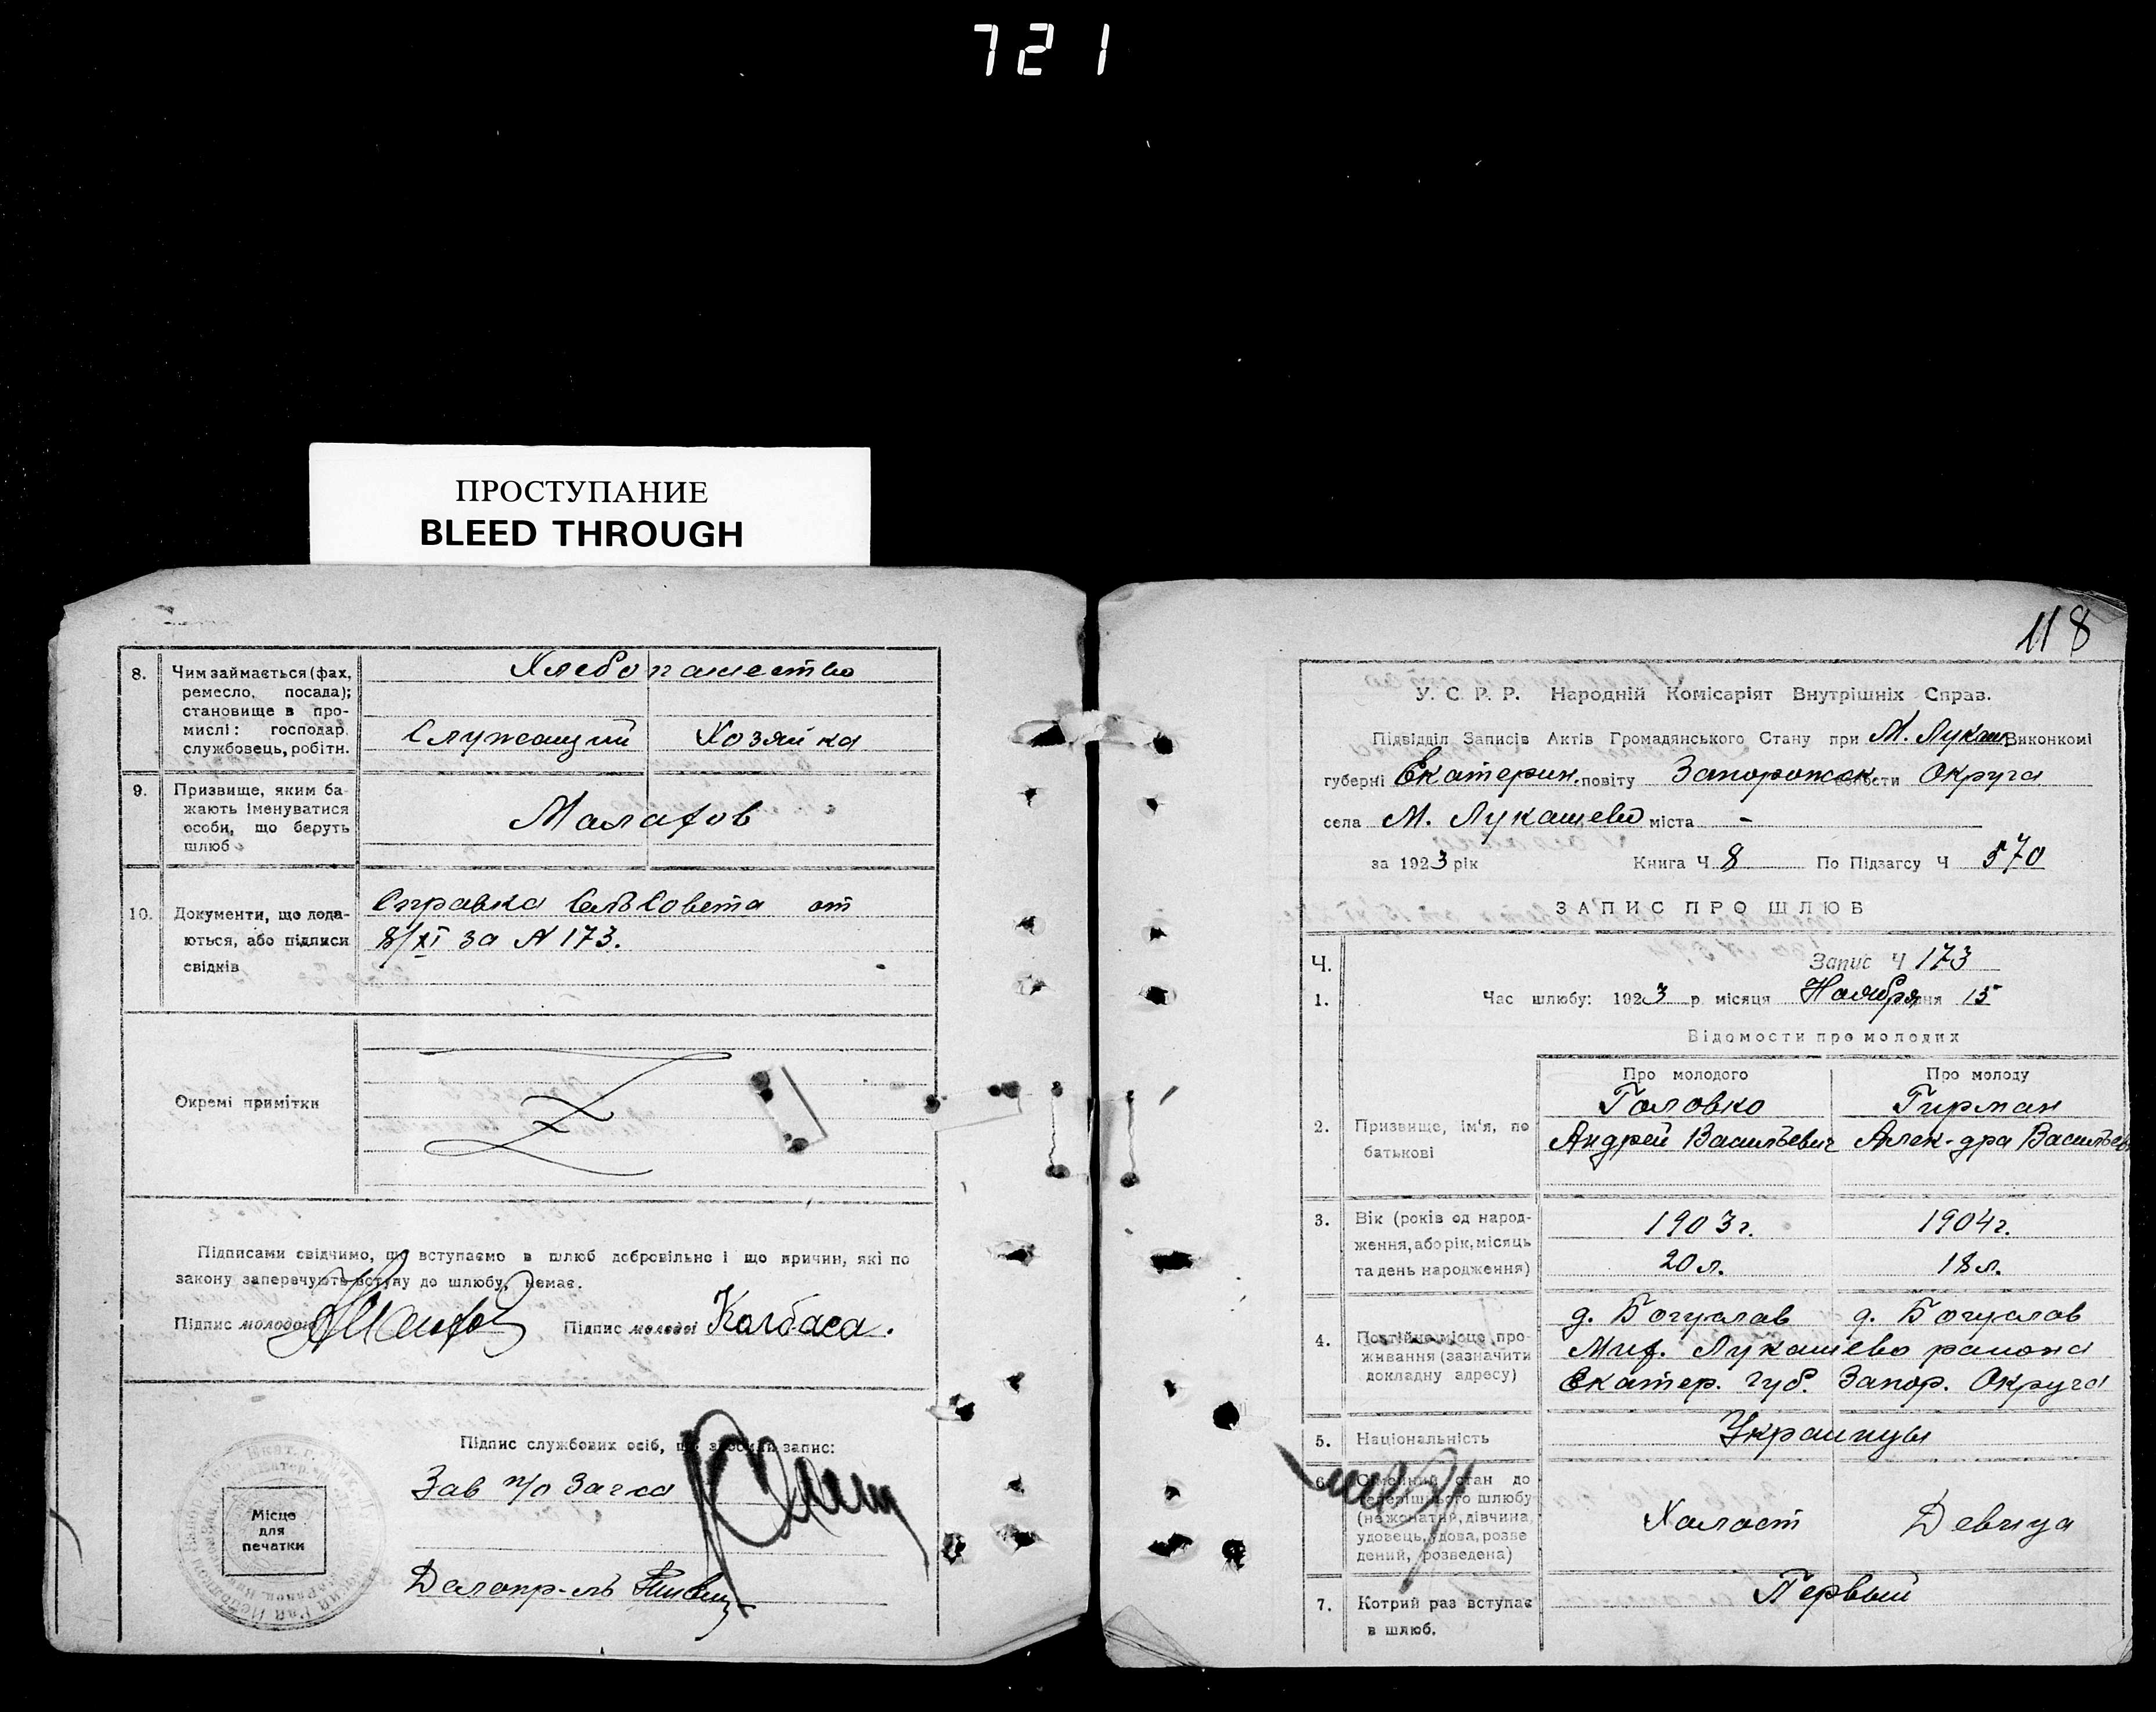 721
ПРОСТУПАНИЕ
BLEED THROUGH
8. Чим займається (фах, ремесло, посада); становище в промислі: господар, службовець, робітн.
Хлебопашество
Служащий Хозяйка
9. Призвище, яким бажають іменуватися особи, що беруть шлюб
Малахов
10. Документи, що додаються, або підписи свідків
Справка СельСовета от
8/XI за N 173.
Окремі примітки
Підписами свідчимо, що вступаємо в шлюб добровільно і що причин, які по
закону заперечують вступу до шлюбу, немає.
Підпис молодого Підпис молодої Колбаса.
Підпис службових осіб, що зробили запис:
Зав п/о Загса
Місце
для
печатки
Делопр-ль
118
У. С. Р. Р. Народній Комісаріят Внутрішніх Справ.
Підвідділ Записів Актів Громадянського Стану при М. Лукаш Виконкомі
губерні Екатерин. повіту Запорожск волости Округа
села М. Лукашево міста -
за 1923 рік Книга Ч 8 По Підзагсу Ч 570
ЗАПИС ПРО ШЛЮБ
Ч. Запис Ч 173
1. Час шлюбу: 1923 р. місяця Ноября дня 15
Відомости про молодих
Про молодого Про молоду
2. Призвище, ім'я, по батькові
Головко Гирман
Андрей Васильевич Алек-дра Васильев
3. Вік (років од народження, або рік, місяць та день народження)
1903г. 1904г.
20 л. 18 л.
4. Постійне місце проживання (зазначити докладну адресу)
д. Богуслав д. Богуслав
Мих. Лукашево района
Екатер. губ. Запор. Округа
5. Національність
Украинцы
6. Сімейний стан до теперішнього шлюбу (нежонатий, дівчина, удовець, удова, розведений, розведена)
Холост Девица
7. Котрий раз вступає в шлюб.
Первый